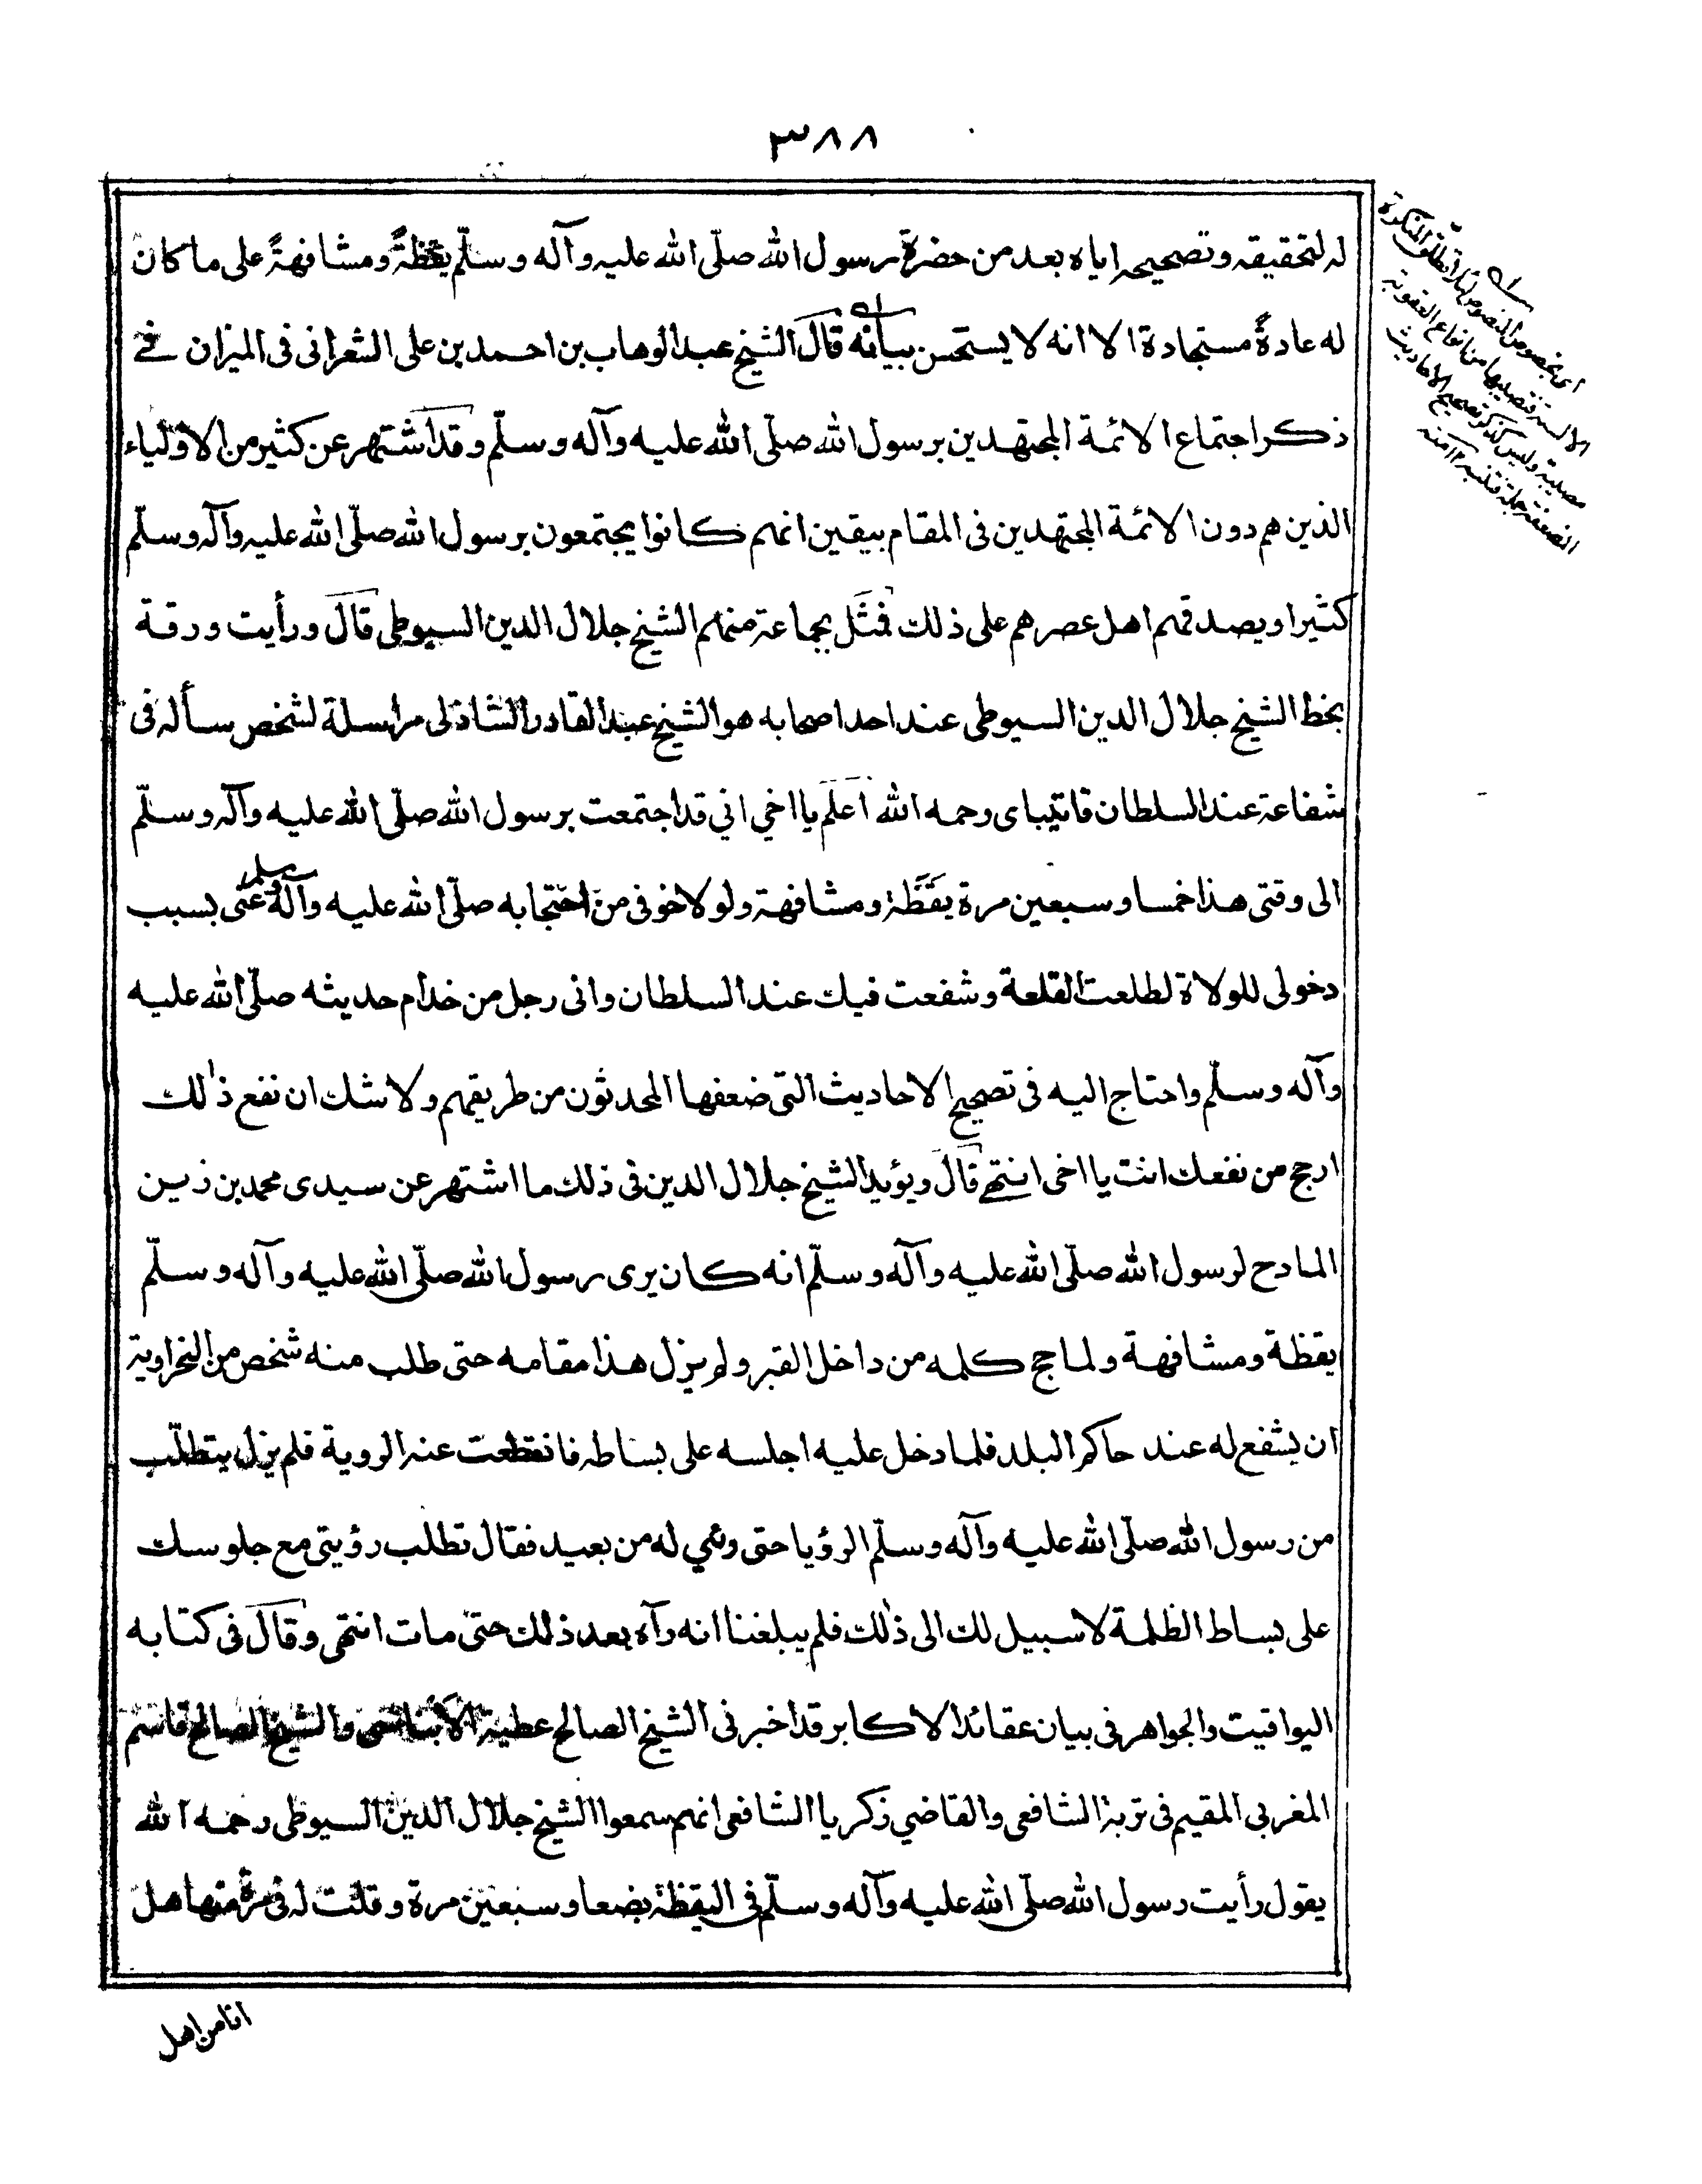 ٣٨٨
له لتحقيقه وتصحيحه اياه بعد من حضرة رسول الله صلّى الله عليه وآله وسلّم يقظةً ومشافهةً على ما كان
له عادةً مستجادة الا انه لا يستحسن بيانه قال الشيخ عبد الوهاب بن احمد بن على الشعرانى فى الميزان فى
ذكر اجتماع الائمة المجتهدين برسول الله صلّى الله عليه وآله وسلّم وقد اشتهر عن كثير من الاولياء
الذين هم دون الائمة المجتهدين فى المقام بيقين انهم كانوا يجتمعون برسول الله صلّى الله عليه وآله وسلّم
كثيرا ويصدقهم اهل عصرهم على ذلك فمثّل بجماعة منهم الشيخ جلال الدين السيوطى قال ورأيت ورقة
بخط الشيخ جلال الدين السيوطى عند احد اصحابه هو الشيخ عبد القادر الشاذلى مراسلة لشخص سأله فى
شفاعة عند السلطان قايتباى رحمه الله اعلم يا اخي اني قد اجتمعت برسول الله صلّى الله عليه وآله وسلّم
الى وقتى هذا خمسا وسبعين مرة يقظة ومشافهة ولولا خوفى من احتجابه صلّى الله عليه وآله وسلم عنى بسبب
دخولى للولاة لطلعت القلعة وشفعت فيك عند السلطان وانى رجل من خدام حديثه صلّى الله عليه
وآله وسلّم واحتاج اليه فى تصحيح الاحاديث التى ضعفها المحدثون من طريقهم ولا شك ان نفع ذلك
ارجح من نفعك انت يا اخى انتهى قال ويؤيد الشيخ جلال الدين فى ذلك ما اشتهر عن سيدى محمد بن زين
المادح لرسول الله صلّى الله عليه وآله وسلّم انه كان يرى رسول الله صلّى الله عليه وآله وسلّم
يقظة ومشافهة ولما حج كلمه من داخل القبر ولم يزل هذا مقامه حتى طلب منه شخص من النحراوية
ان يشفع له عند حاكم البلد فلما دخل عليه اجلسه على بساطه فانقطعت عنه الروية فلم يزل يتطلّب
من رسول الله صلّى الله عليه وآله وسلّم الرؤيا حتى رئي له من بعيد فقال تطلب رؤيتى مع جلوسك
على بساط الظلمة لا سبيل لك الى ذلك فلم يبلغنا انه رآه بعد ذلك حتى مات انتهى وقال فى كتابه
اليواقيت والجواهر فى بيان عقائد الاكابر قد اخبرنى الشيخ الصالح عطية الأبناسى والشيخ الصالح قاسم
المغربى المقيم فى تربة الشافعى والقاضي زكريا الشافعى انهم سمعوا الشيخ جلال الدين السيوطى رحمه الله
يقول رأيت رسول الله صلّى الله عليه وآله وسلّم فى اليقظة بضعا وسبعين مرة وقلت له فى مرة منها هل
انا من اهل